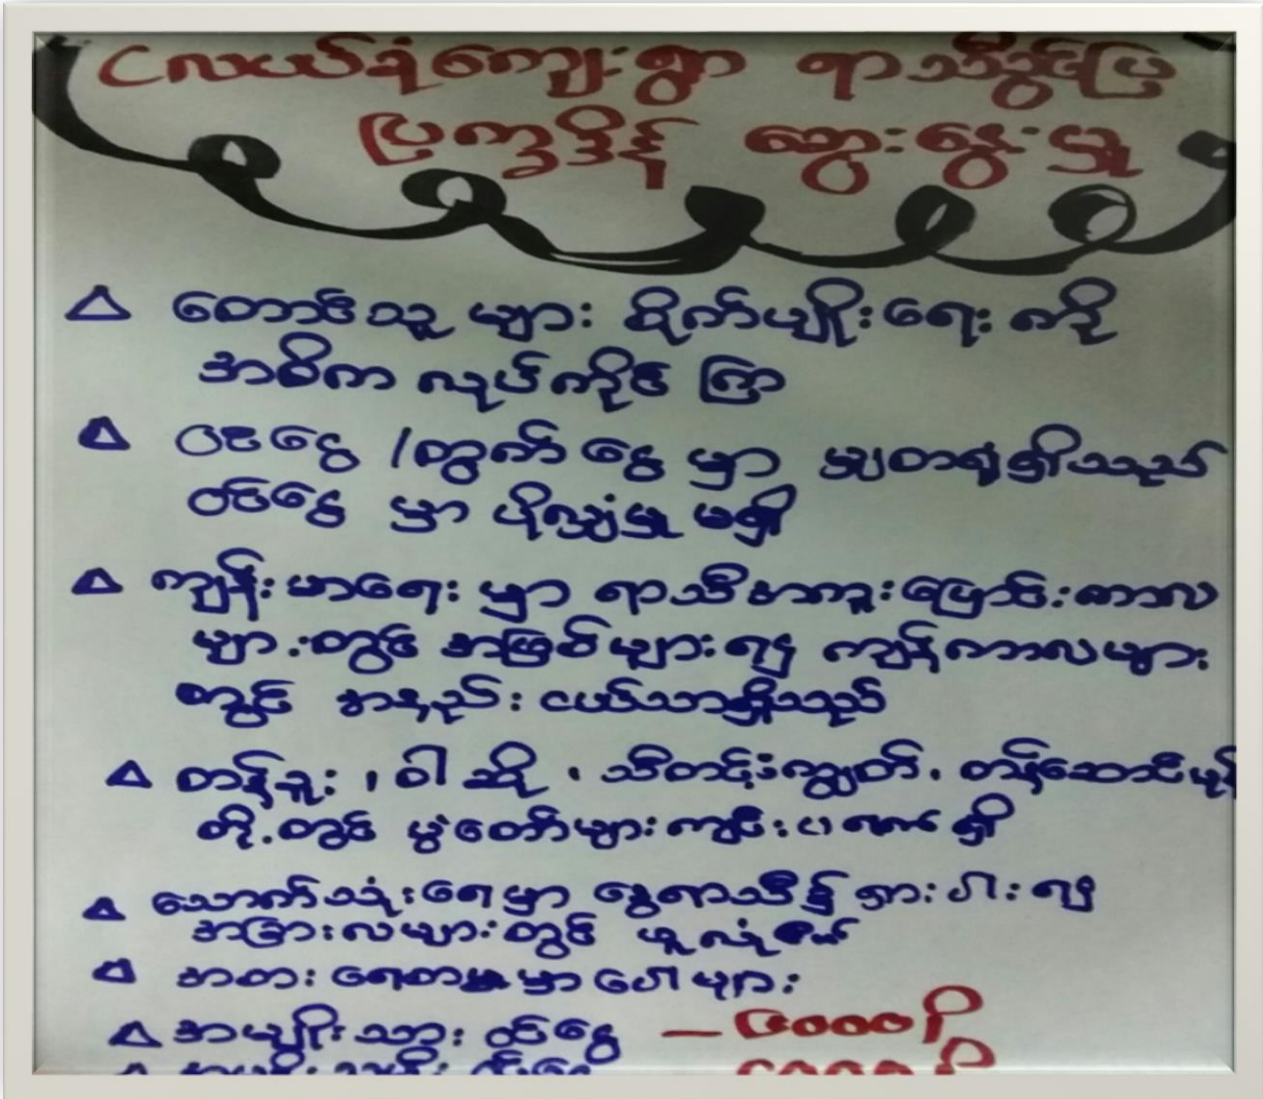 လယ်ခုံကျေးရွာ ရာသီခွင်ပြ
ပြက္ခဒိန် ဆွေးနွေးမှု
တောင်သူများ စိုက်ပျိုးရေးကို
အဓိက လုပ်ကိုင်ကြ
ဝင်ငွေ/ထွက်ငွေမှာ မျှတရုံရှိသည်
ဝင်ငွေမှာ ပိုလျှံမှုမရှိ
ကျန်းမာရေးမှာ ရာသီအကူးပြောင်းကာလ
များတွင် အဖြစ်များ၍ ကျန်ကာလများ
တွင် အနည်းငယ်သာရှိသည်
တန်ခူး၊ ဝါဆို၊ သီတင်းကျွတ်၊ တန်ဆောင်မုန်
တို့တွင် ပွဲတော်များကျင်းပလေ့ရှိ
သောက်သုံးရေမှာ နွေရာသီ၌ ရှားပါး၍
အခြားလများတွင် ဖူလုံ
အစားရေစာမှာ ပေါများ
အမျိုးသားဝင်ငွေ — ၆၀၀၀ိ